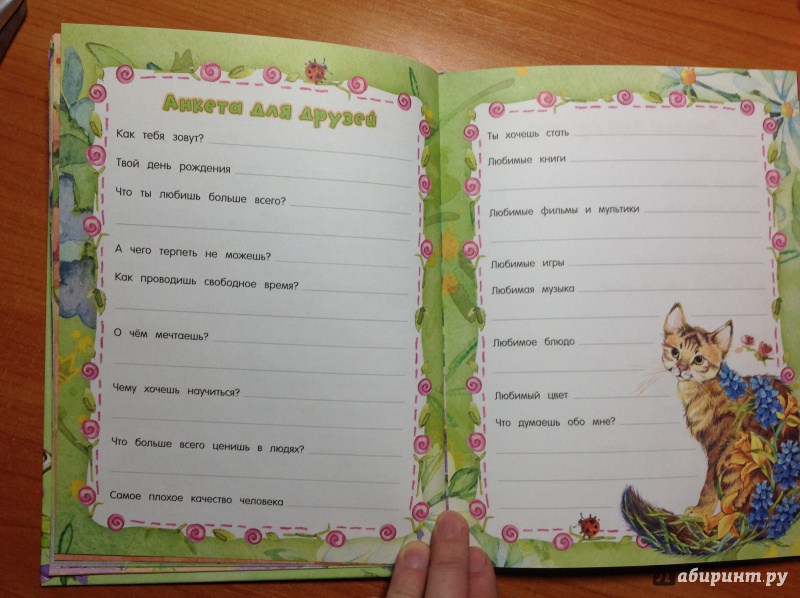 Анкета для друзей
Как тебя зовут?
Твой день рождения
Что ты любишь больше всего?
А чего терпеть не можешь?
Как проводишь свободное время?
О чём мечтаешь?
Чему хочешь научиться?
Что больше всего ценишь в людях?
Самое плохое качество человека
Ты хочешь стать
Любимые книги
Любимые фильмы и мультики
Любимые игры
Любимая музыка
Любимое блюдо
Любимый цвет
Что думаешь обо мне?
Лабиринт.ру